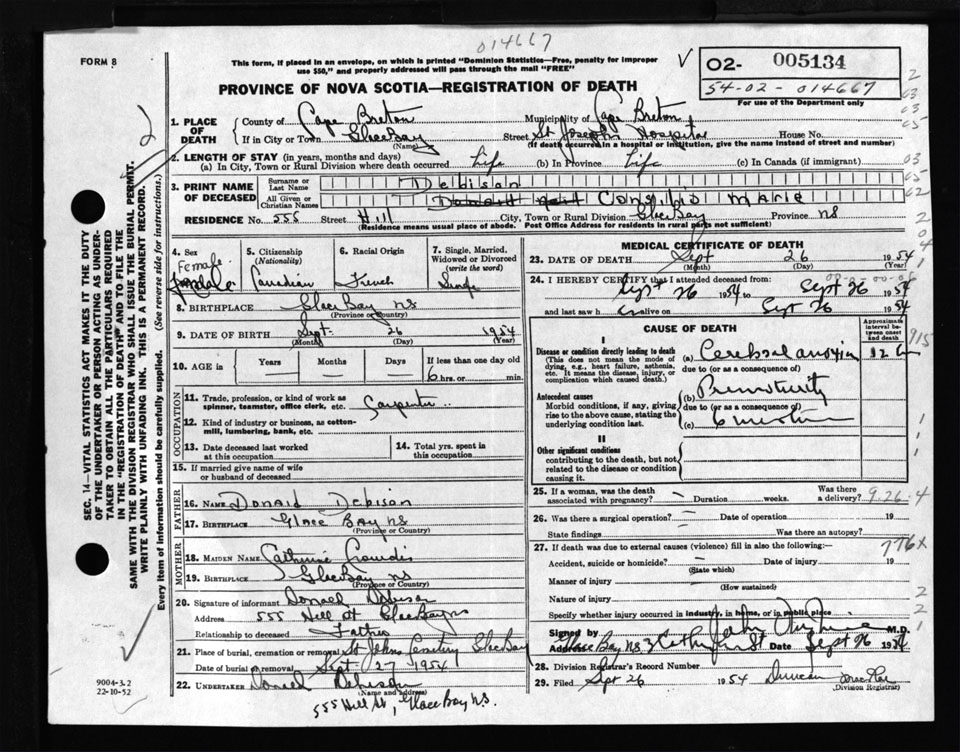 014667
FORM 8
This form, if placed in an envelope, on which is printed "Dominion Statistics—Free, penalty for improper
use $50," and properly addressed will pass through the mail "FREE"
PROVINCE OF NOVA SCOTIA—REGISTRATION OF DEATH
O2- 005134
54-02-014667
For use of the Department only
1. PLACE OF DEATH
County of Cape Breton Municipality of Cape Breton
If in City or Town Glace Bay Street St Joseph Hospital House No.
(Name) (If death occurred in a hospital or institution, give the name instead of street and number)
2. LENGTH OF STAY (in years, months and days)
(a) In City, Town or Rural Division where death occurred Life (b) In Province Life (c) In Canada (if immigrant)
3. PRINT NAME OF DECEASED
Surname or Last Name Debison
All Given or Christian Names Marie
RESIDENCE No. 555 Street Hill City, Town or Rural Division Glace Bay Province NS
(Residence means usual place of abode. Post Office Address for residents in rural parts not sufficient)
4. Sex
Female
5. Citizenship (Nationality)
Canadian
6. Racial Origin
French
7. Single, Married, Widowed or Divorced (write the word)
Single
8. BIRTHPLACE Glace Bay NS
(Province or Country)
9. DATE OF BIRTH Sept. 26 1954
(Month) (Day) (Year)
10. AGE in Years Months Days If less than one day old
6 hrs. or min.
OCCUPATION
11. Trade, profession, or kind of work as
spinner, teamster, office clerk, etc. Carpenter
12. Kind of industry or business, as cotton-
mill, lumbering, bank, etc.
13. Date deceased last worked
at this occupation
14. Total yrs. spent in
this occupation
15. If married give name of wife
or husband of deceased
FATHER
16. NAME Donald Debison
17. BIRTHPLACE Glace Bay NS
(Province or Country)
MOTHER
18. MAIDEN NAME Catherine
19. BIRTHPLACE Glace Bay NS
(Province or Country)
20. Signature of informant Donald Debison
Address 555 Hill St Glace Bay NS
Relationship to deceased Father
21. Place of burial, cremation or removal St Johns Cemetery Glace Bay
Date of burial or removal Sept 27 1954
22. UNDERTAKER Donald Debison
(Name and address)
555 Hill St, Glace Bay NS.
MEDICAL CERTIFICATE OF DEATH
23. DATE OF DEATH Sept 26 1954
(Month) (Day) (Year)
24. I HEREBY CERTIFY that I attended deceased from:
Sept 26 1954 to Sept 26 1954
and last saw h er alive on Sept 26 1954
CAUSE OF DEATH
Approximate interval between onset and death
I
Disease or condition directly leading to death
(This does not mean the mode of
dying, e.g., heart failure, asthenia,
etc. It means the disease, injury, or
complication which caused death.)
(a) Cerebral anoxia 12 hr
due to (or as a consequence of)
Antecedent causes
Morbid conditions, if any, giving
rise to the above cause, stating the
underlying condition last.
(b) Prematurity
due to (or as a consequence of)
(c) 6 months
II
Other significant conditions
contributing to the death, but not
related to the disease or condition
causing it.
25. If a woman, was the death
associated with pregnancy? — Duration weeks. Was there a delivery?
9.26.4
26. Was there a surgical operation? — Date of operation 19
State findings — Was there an autopsy?
27. If death was due to external causes (violence) fill in also the following:—
776X
Accident, suicide or homicide? — Date of injury 19
(State which)
Manner of injury —
(How sustained)
Nature of injury
Specify whether injury occurred in industry, in home, or in public place
Signed by John M.D.
Address Glace Bay N.S. St Date Sept 26 1954
28. Division Registrar's Record Number
29. Filed Sept 26 1954 Duncan
(Division Registrar)
SEC. 14—VITAL STATISTICS ACT MAKES IT THE DUTY
OF THE UNDERTAKER OR PERSON ACTING AS UNDER-
TAKER TO OBTAIN ALL THE PARTICULARS REQUIRED
IN THE "REGISTRATION OF DEATH" AND TO FILE THE
SAME WITH THE DIVISION REGISTRAR WHO SHALL ISSUE THE BURIAL PERMIT.
WRITE PLAINLY WITH UNFADING INK. THIS IS A PERMANENT RECORD.
Every item of information should be carefully supplied. (See reverse side for instructions.)
9004-3.2
22-10-52